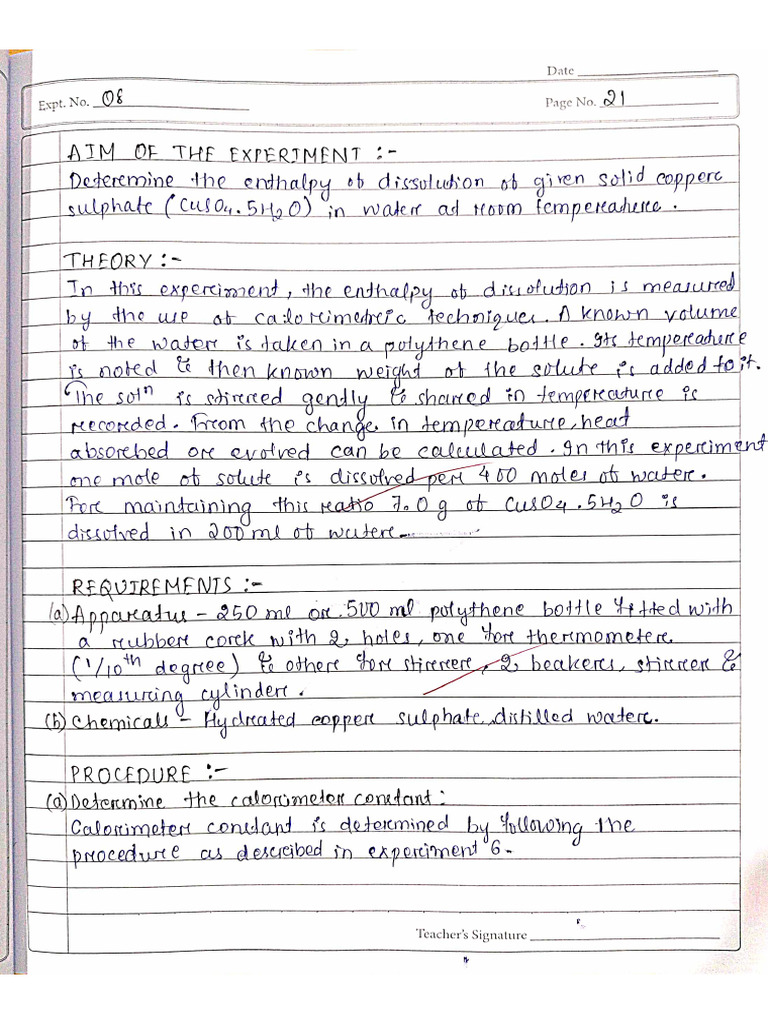 Date
Expt. No. 08
Page No. 21
AIM OF THE EXPERIMENT :-
Deteremine the enthalpy of dissolution of given solid coppere
sulphate (CuSO4.5H2O) in water at room temperature.
THEORY :-
In this experiment, the enthalpy of dissolution is measured
by the use of calorimetric techniques. A known volume
of the water is taken in a polythene bottle. Its temperature
is noted & then known weight of the solute is added to it.
The solⁿ is stirred gently & shared in temperature is
recorded. From the change in temperature, heat
absorbed or evolved can be calculated. In this experiment
one mole of solute is dissolved per 400 moles of water.
For maintaining this ratio 7.0 g of CuSO4.5H2O is
dissolved in 200 ml of water.
REQUIREMENTS :-
(a) Apparatus - 250 ml or 500 ml polythene bottle fitted with
a rubber cork with 2 holes, one for thermometer.
(1/10th degree) & others for stirrer, 2 beakers, stirrer &
measuring cylinder.
(b) Chemicals - Hydrated copper sulphate, distilled water.
PROCEDURE :-
(a) Determine the calorimeter constant :
Calorimeter constant is determined by following the
procedure as described in experiment 6.
Teacher's Signature